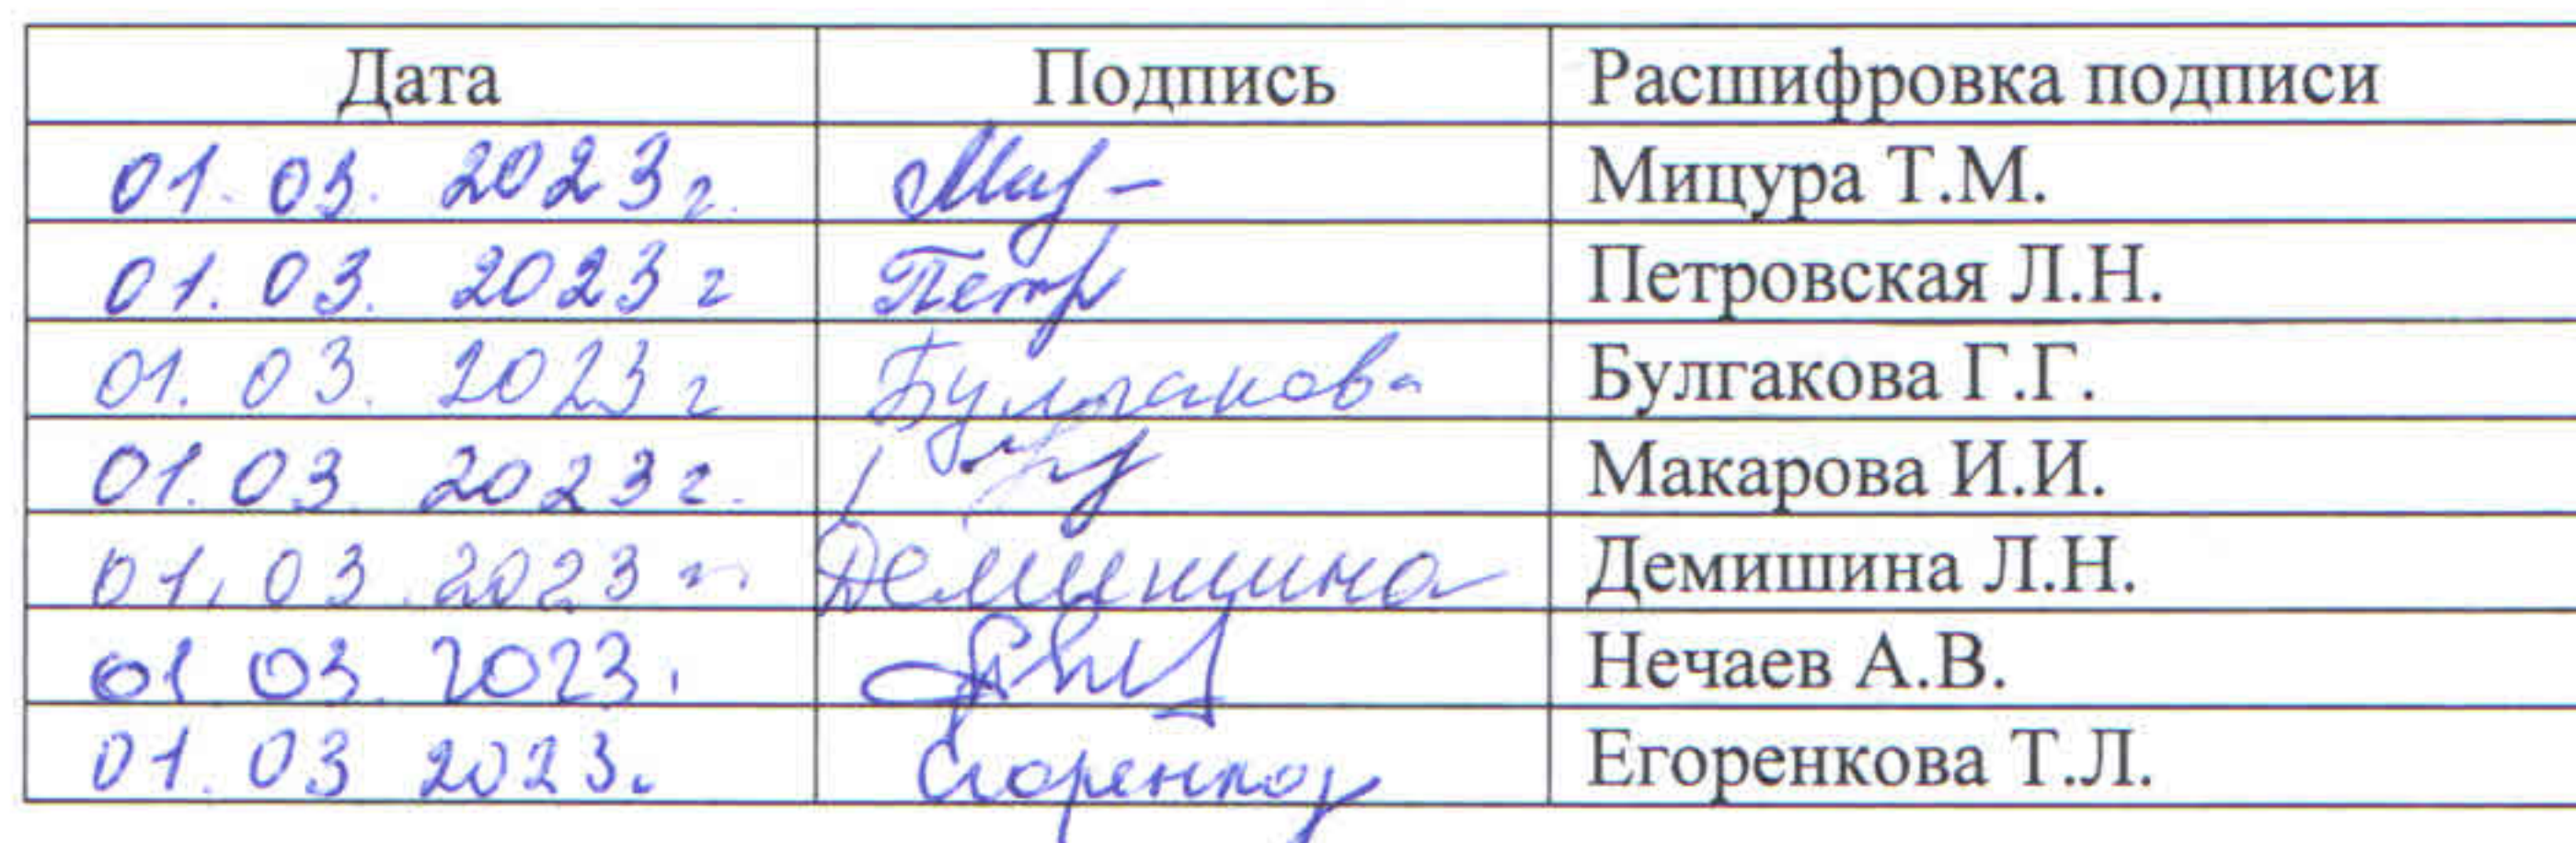 Дата Подпись Расшифровка подписи
01.03.2023г. Мицура Т.М.
01.03.2023г Петр Петровская Л.Н.
01.03.2023г Булгакова Булгакова Г.Г.
01.03.2023г. Макарова И.И.
01.03.2023г. Демишина Демишина Л.Н.
01.03.2023. Нечаев А.В.
01.03.2023. Егоренкова Т.Л.